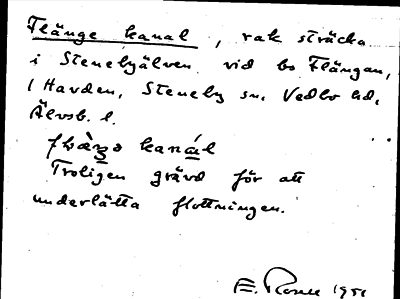 Flänge kanal, rak sträcka
i Stenebyälven vid bo Flängan,
i Havden, Steneby sn, Vedbo hd,
Älvsb. l.
kanál
Troligen grävd för att
underlätta flottningen.
E. 1951